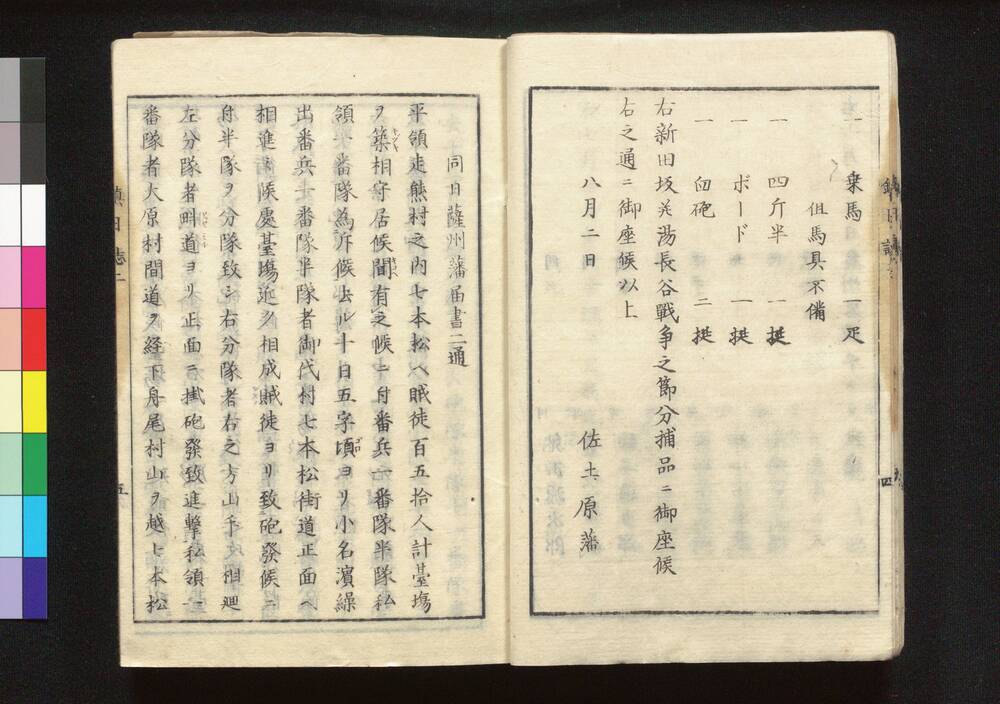 一 乗馬 一疋
但馬具不備
一 四斤半 一挺
一 ボード 一挺
一 臼砲 二挺
右新田坂并湯長谷戰争之節分捕品ニ御座候
右之通ニ御座候以上
八月二日 佐土原藩
四
同日薩州藩届書二通
平領走熊村之内七本松ヘ賊徒百五拾人計臺塲
ヲ築相守居候間有之候ニ付番兵一番隊半隊私
領一番隊為斥候去ル十日五字頃ヨリ小名濱繰
出番兵一番隊半隊者御代村七本松街道正面ヘ
相進ミ候處臺塲近ク相成賊徒ヨリ致砲發候ニ
付半隊ヲ分隊致シ右分隊者右之方山手ヘ相廻
左分隊者畔道ヨリ正面ニ掛砲發致進撃私領一
番隊者大原村間道ヲ経下舟尾村山ヲ越七本松
鎮日誌二
五